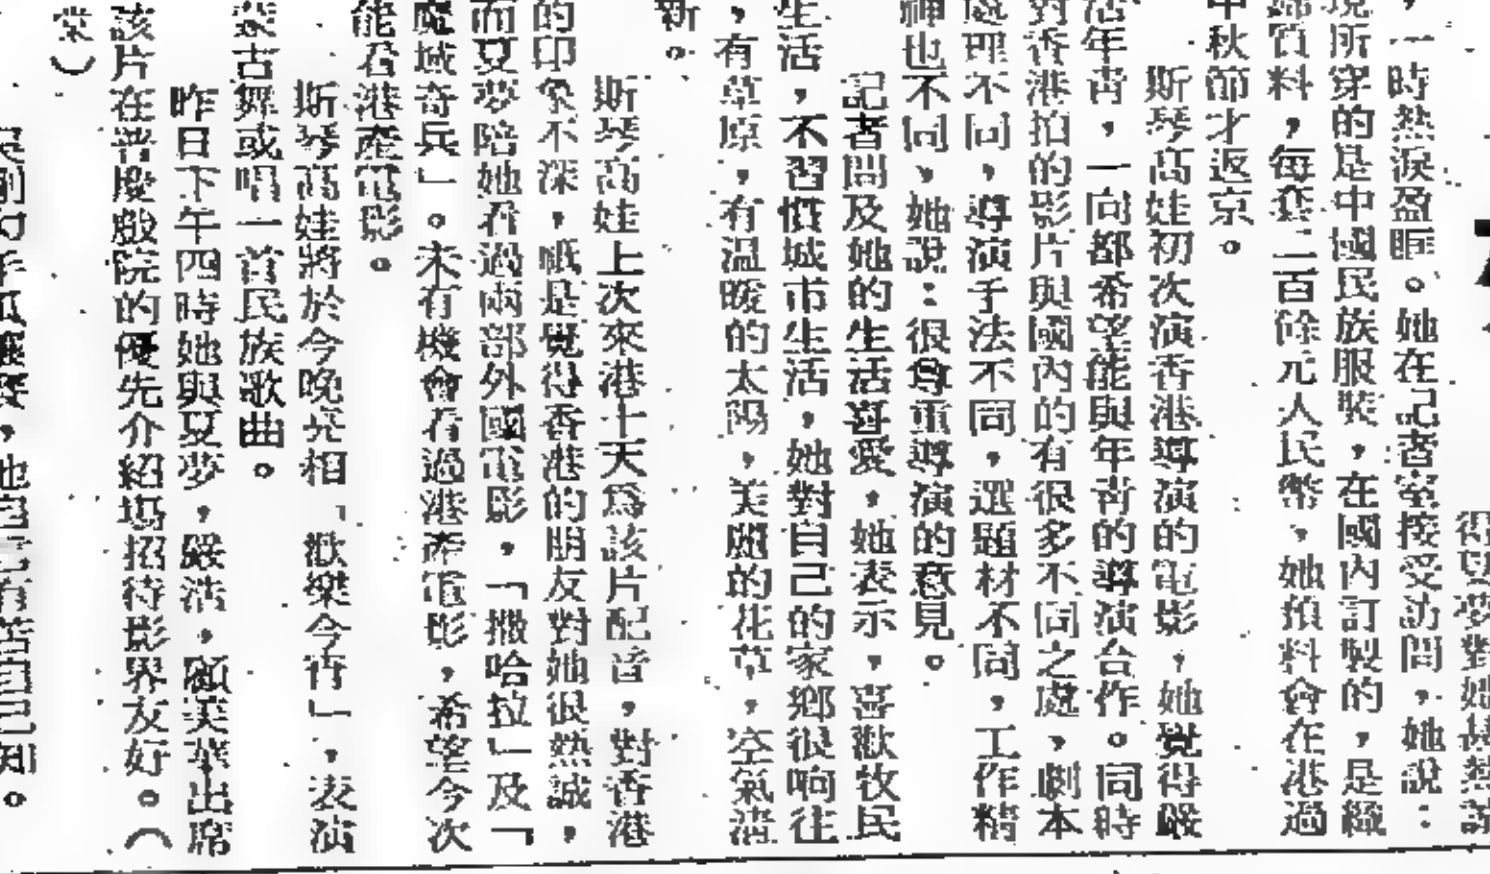 得夏夢對她甚熱
，一時熱淚盈眶。她在記者室接受訪問，她說：
現所穿的是中國民族服裝，在國內訂製的，是織
錦質料，每套二百餘元人民幣，她預料會在港過
中秋節才返京。
斯琴高娃初次演香港導演的電影，她覺得嚴
浩年青，一向都希望能與年青的導演合作。同時
對香港拍的影片與國內的有很多不同之處，劇本
處理不同，導演手法不同，選題材不同，工作精
神也不同、她說：很尊重導演的意見。
記者問及她的生活喜愛，她表示，喜歡牧民
生活，不習慣城市生活，她對自己的家鄉很响往
，有草原，有温暖的太陽，美麗的花草，空氣清
新。
斯琴高娃上次來港十天爲該片配音，對香港
的印象不深，祇是覺得香港的朋友對她很熱誠，
而夏夢陪她看過兩部外國電影，「撒哈拉」及「
魔域奇兵」。未有機會看過港產電影，希望今次
能看港產電影。
斯琴高娃將於今晚亮相「歡樂今宵」，表演
蒙古舞或唱一首民族歌曲。
昨日下午四時她與夏夢，嚴浩，顧美華出席
該片在普慶戲院的優先介紹場招待影界友好。（
棠）
，他自己有苦自己知。